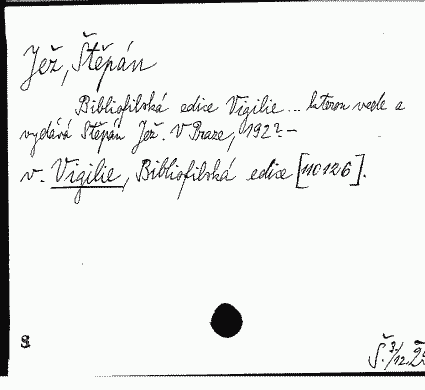 Jež, Štěpán
Bibliofilská edice Vigilie... kterou vede a
vydává Štěpán Jež. V Praze, 192?-
v. Vigilie, Bibliofilská edice [110126].
Š. 3/12 25